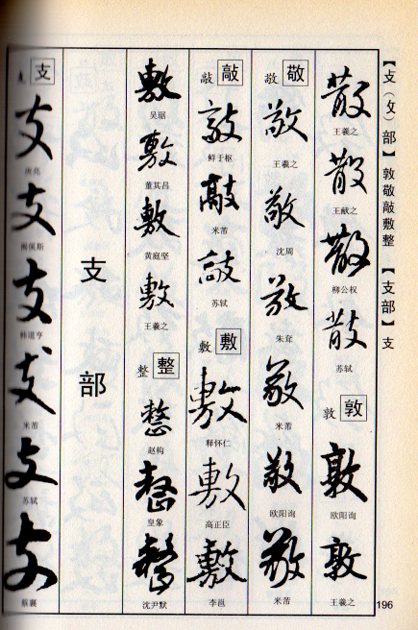 【攴（攵）部】敦敬敲敷整 【支部】支
散
王羲之
散
王献之
散
柳公权
散
苏轼
敦 敦
敦
欧阳询
敦
王羲之
敬 敬
敬
王羲之
敬
沈周
敬
朱耷
敬
米芾
敬
欧阳询
敬
米芾
敲 敲
敲
鲜于枢
敲
米芾
敲
苏轼
敷 敷
敷
释怀仁
敷
高正臣
敷
李邕
敷
吴琚
敷
董其昌
敷
黄庭坚
敷
王羲之
整 整
整
赵构
整
皇象
整
沈尹默
支部
支
支
支
支
韩道亨
支
米芾
支
苏轼
支
蔡襄
196